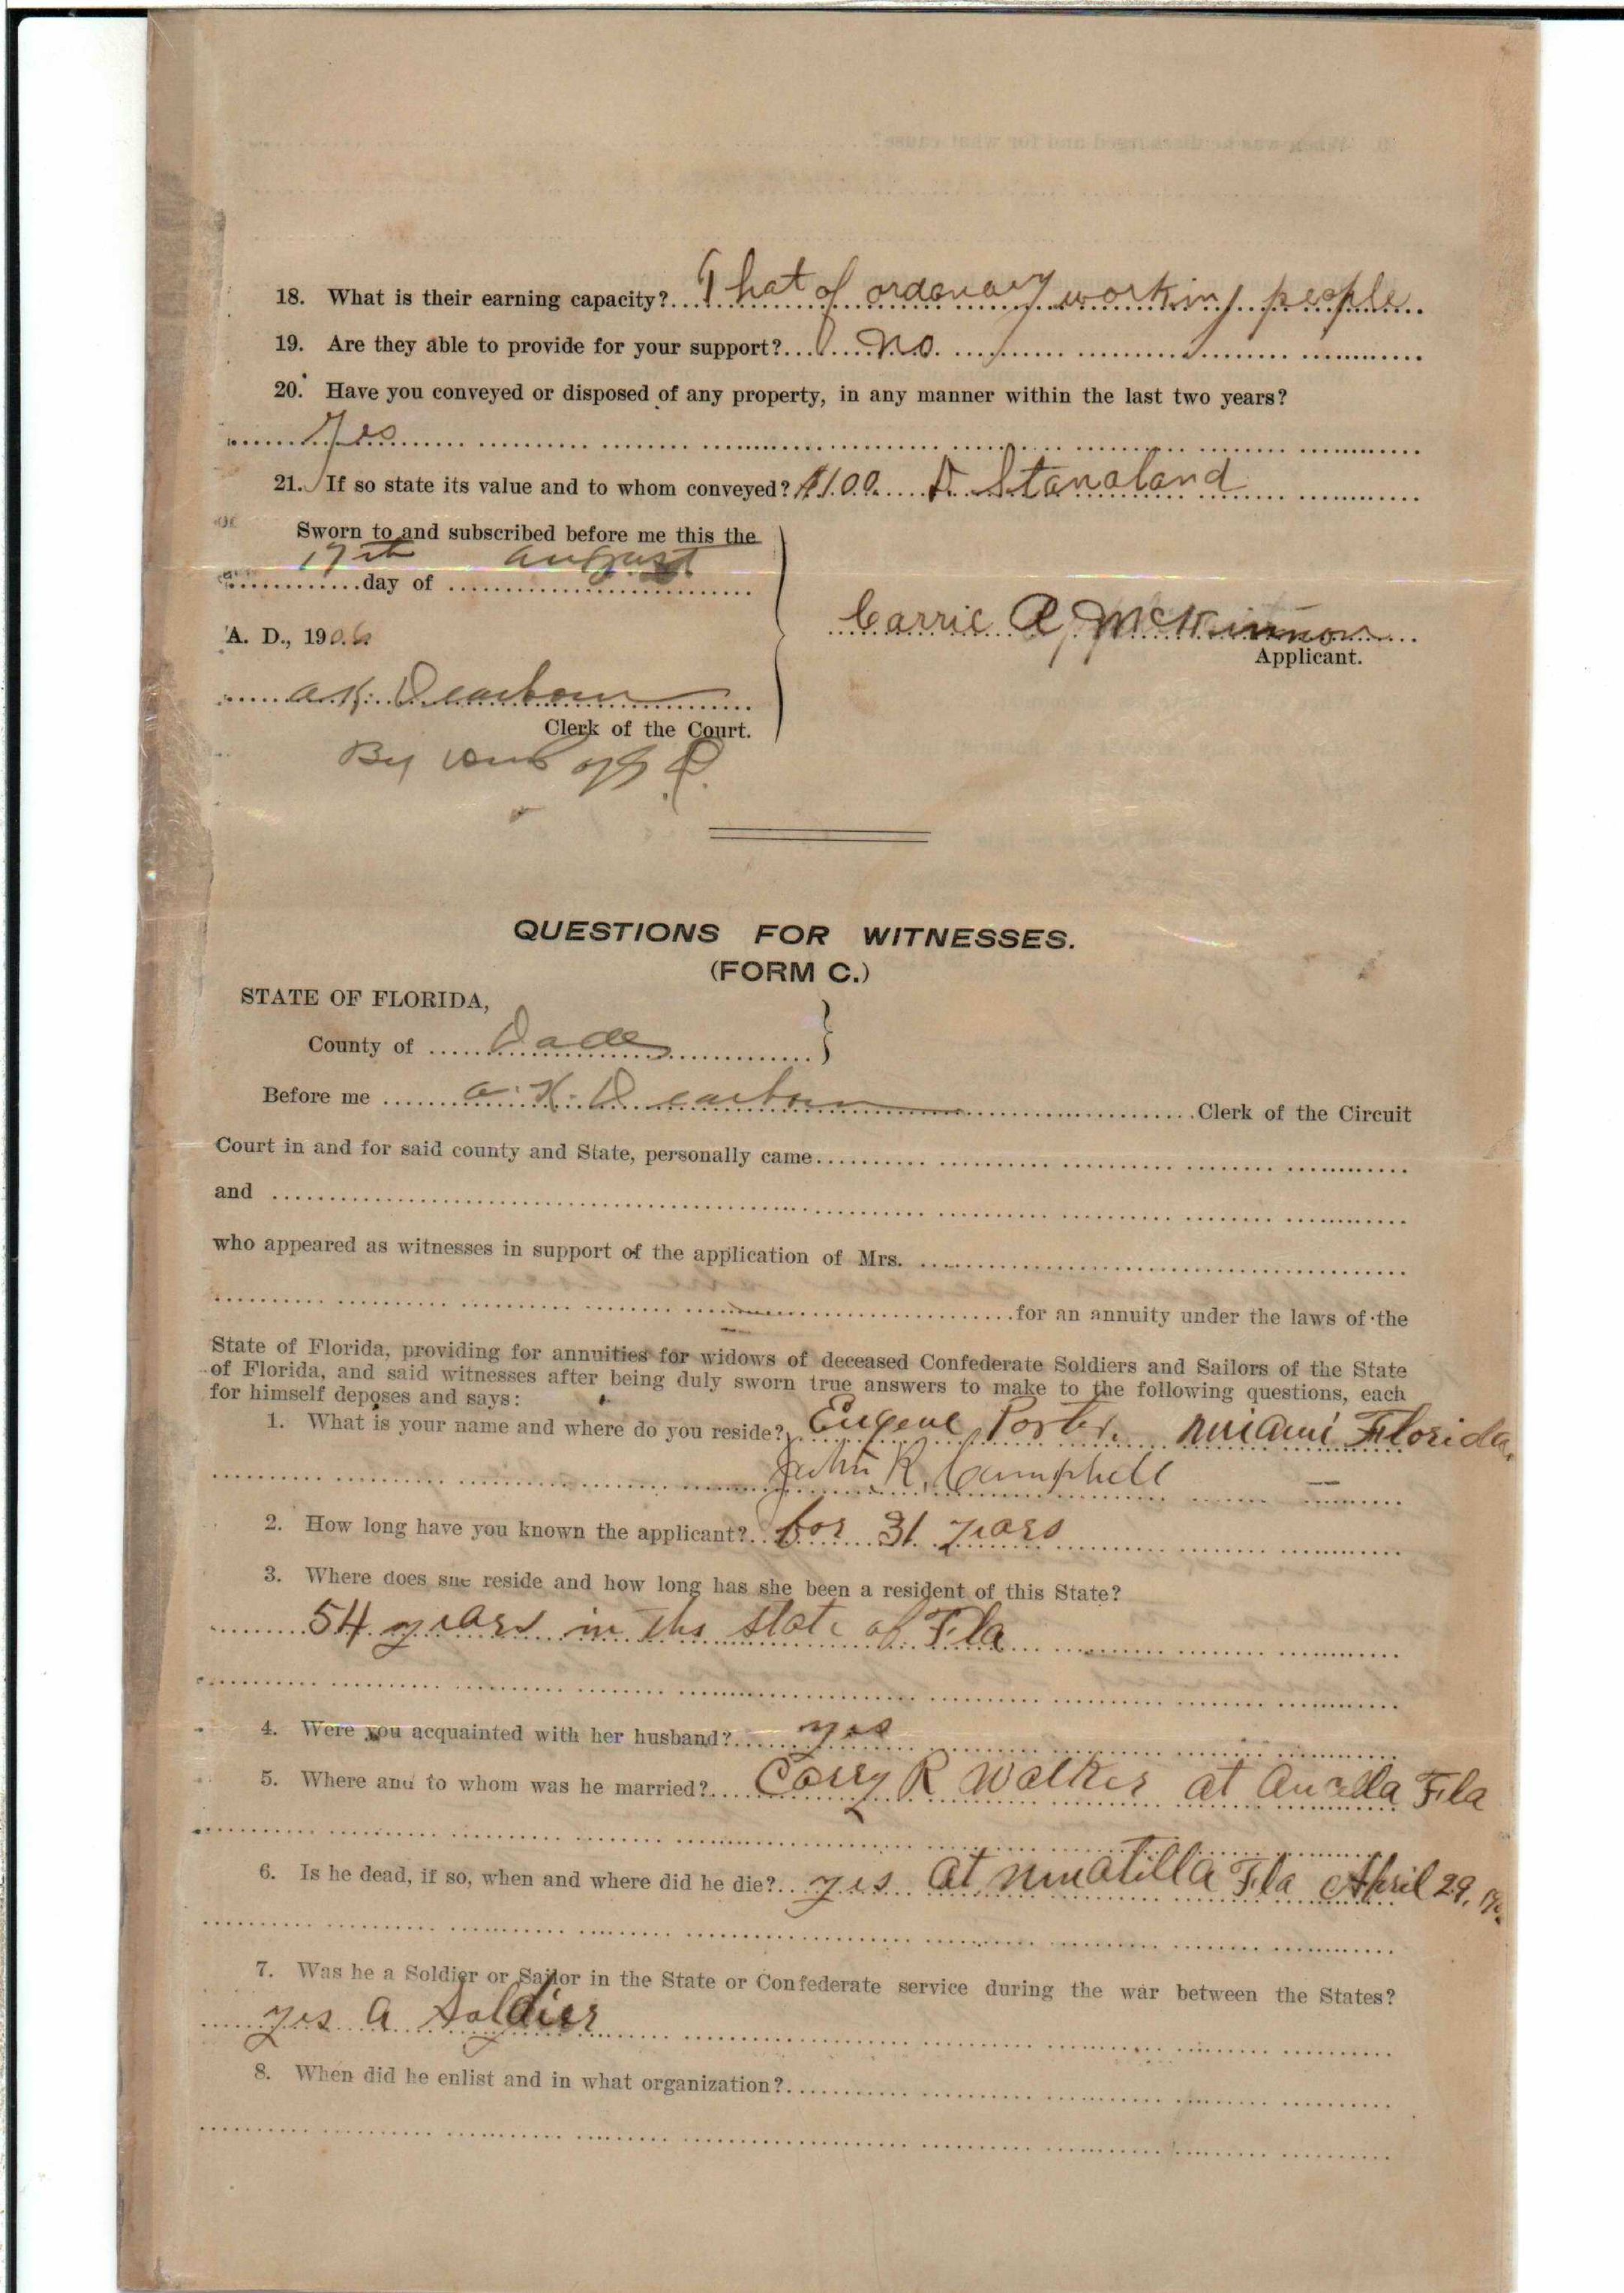 18. What is their earning capacity? That of ordenary working people
19. Are they able to provide for your support? no
20. Have you conveyed or disposed of any property, in any manner within the last two years?
Yes
21. If so state its value and to whom conveyed? $100 Stanaland
Sworn to and subscribed before me this the
17th day of august
A. D., 1906
Carrie R McKinnon
Applicant.
a.K. Dearborn
Clerk of the Court.
By
QUESTIONS FOR WITNESSES.
(FORM C.)
STATE OF FLORIDA,
County of Dade
Before me a. K. Dearborn Clerk of the Circuit
Court in and for said county and State, personally came
and
who appeared as witnesses in support of the application of Mrs.
for an annuity under the laws of the
State of Florida, providing for annuities for widows of deceased Confederate Soldiers and Sailors of the State
of Florida, and said witnesses after being duly sworn true answers to make to the following questions, each
for himself deposes and says:
1. What is your name and where do you reside? Eugene Porter. Miami Florida,
John R. Campbell
2. How long have you known the applicant? for 31 years
3. Where does she reside and how long has she been a resident of this State?
54 years in the state of Fla
4. Were you acquainted with her husband? yes
5. Where and to whom was he married? Carry R Walker at Fla
6. Is he dead, if so, when and where did he die? yes at umatilla Fla April 29,
7. Was he a Soldier or Sailor in the State or Confederate service during the war between the States?
yes a Soldier
8. When did he enlist and in what organization?